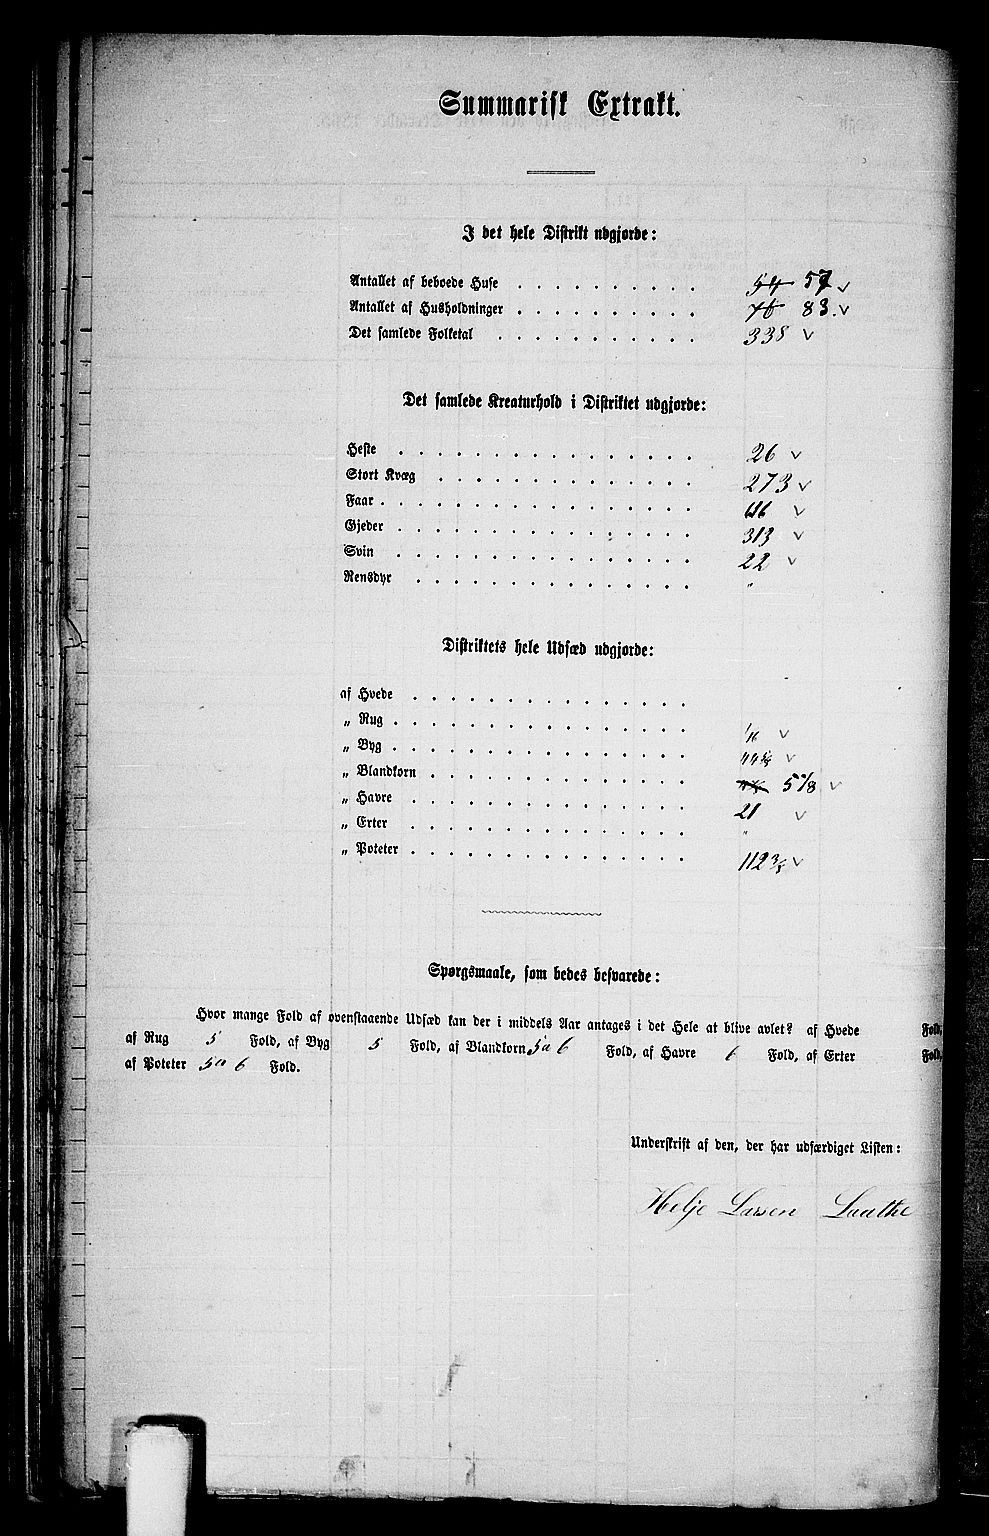 Summarisk Extrakt.
I det hele Distrikt udgjorde:
Antallet af beboede Huse . . . . . . . . . . 54 57 v
Antallet af Husholdninger . . . . . . . . . . 83. v
Det samlede Folketal . . . . . . . . . . . 338 v
Det samlede Kreaturhold i Distriktet udgjorde:
Heste . . . . . . . . . . . . . . . 26 v
Stort Kvæg . . . . . . . . . . . . . 273 v
Faar . . . . . . . . . . . . . . . . v
Gjeder . . . . . . . . . . . . . . . 313 v
Svin . . . . . . . . . . . . . . . 22 v
Rensdyr . . . . . . . . . . . . . . "
Distriktets hele Udsæd udgjorde:
af Hvede . . . . . . . . . . . . . .
„ Rug . . . . . . . . . . . . . . . v
„ Byg . . . . . . . . . . . . . . . v
„ Blandkorn . . . . . . . . . . . . . 5 1/8 v
„ Havre . . . . . . . . . . . . . . 21 v
„ Erter . . . . . . . . . . . . . . "
„ Poteter . . . . . . . . . . . . . . 112 v
Spørgsmaale, som bedes besvarede:
Hvor mange Fold af ovenstaaende Udsæd kan der i middels Aar antages i det Hele at blive avlet? af Hvede Fold,
af Rug 5 Fold, af Byg 5 Fold, af Blandkorn 5 a 6 Fold, af Havre 6 Fold, af Erter Fold,
af Poteter 5 a 6 Fold.
Underskrift af den, der har udfærdiget Listen:
Helje Larsen